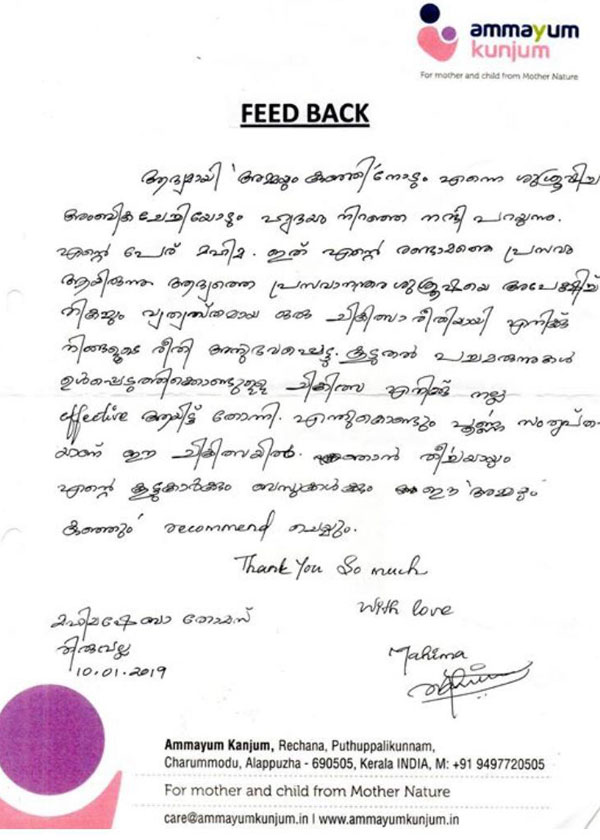 ammayum
kunjum
For mother and child from Mother Nature
FEED BACK
ആദ്യമായി 'അമ്മയും കുഞ്ഞി'നോടും എന്നെ ശുശ്രൂഷിച്ച
അംബിക ചേച്ചിയോടും ഹൃദയം നിറഞ്ഞ നന്ദി പറയുന്നു.
എന്റെ പേര് മഹിമ. ഇത് എന്റെ രണ്ടാമത്തെ പ്രസവം
ആയിരുന്നു. ആദ്യത്തെ പ്രസവാനന്തര ശുശ്രൂഷയെ അപേക്ഷിച്ച്
തികച്ചും വ്യത്യസ്തമായ ഒരു ചികിത്സാ രീതിയായി എനിക്ക്
നിങ്ങളുടെ രീതി അനുഭവപ്പെട്ടു. കൂടുതൽ പച്ചമരുന്നുകൾ
ഉൾപ്പെടുത്തിക്കൊണ്ടുള്ള ചികിത്സ എനിക്ക് നല്ല
effective ആയിട്ട് തോന്നി. എന്തുകൊണ്ടും പൂർണ്ണ സംതൃപ്ത
യാണ് ഈ ചികിത്സയിൽ. ഞാൻ തീർച്ചയായും
എന്റെ കൂട്ടുകാർക്കും ബന്ധുക്കൾക്കും ഈ 'അമ്മയും
കുഞ്ഞും' recommend ചെയ്യും.
Thank You So much
With love
മഹിമ തോമസ്
തിരുവല്ല
10.01.2019
Mahima
Ammayum Kanjum, Rechana, Puthuppalikunnam,
Charummodu, Alappuzha - 690505, Kerala INDIA, M: +91 9497720505
For mother and child from Mother Nature
care@ammayumkunjum.in I www.ammayumkunjum.in